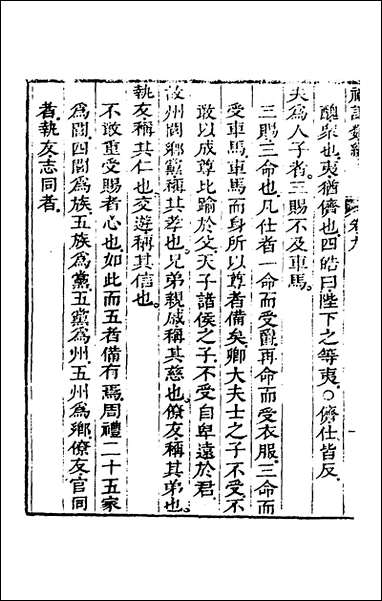 醜衆也夷猶儕也四皓曰陛下之等夷○儕仕皆反
夫為人子者三賜不及車馬
三賜三命也凡仕者一命而受爵再命而受衣服三命而
受車馬車馬而身所以尊者備矣卿大夫士之子不受不
敢以成尊比踰於父天子諸侯之子不受自卑遠於君
故州閭鄉黨稱其孝也兄弟親戚稱其慈也僚友稱其弟也
執友稱其仁也交遊稱其信也
不敢重受賜者心也如此而五者備有焉周禮二十五家
為閭四閭為族五族為黨五黨為州五州為鄉僚友官同
者執友志同者